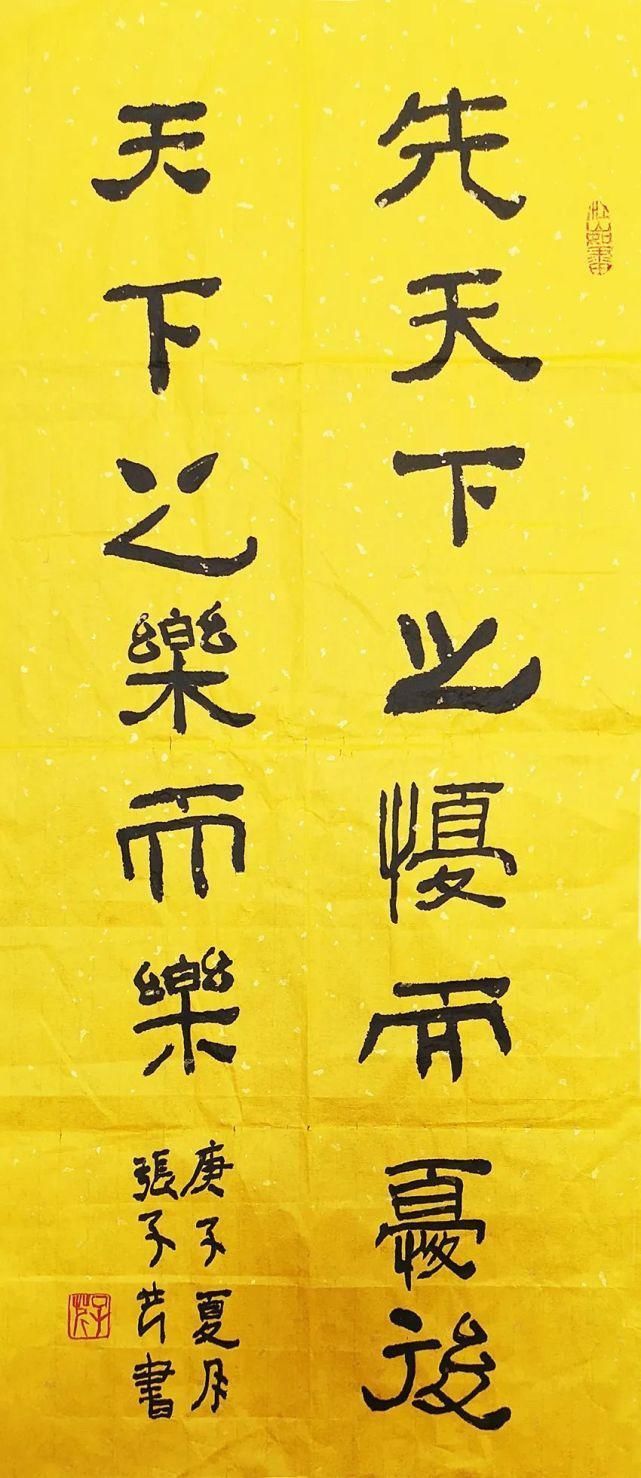 先天下之憂而憂後
天下之樂而樂
庚子夏月
張子芳書